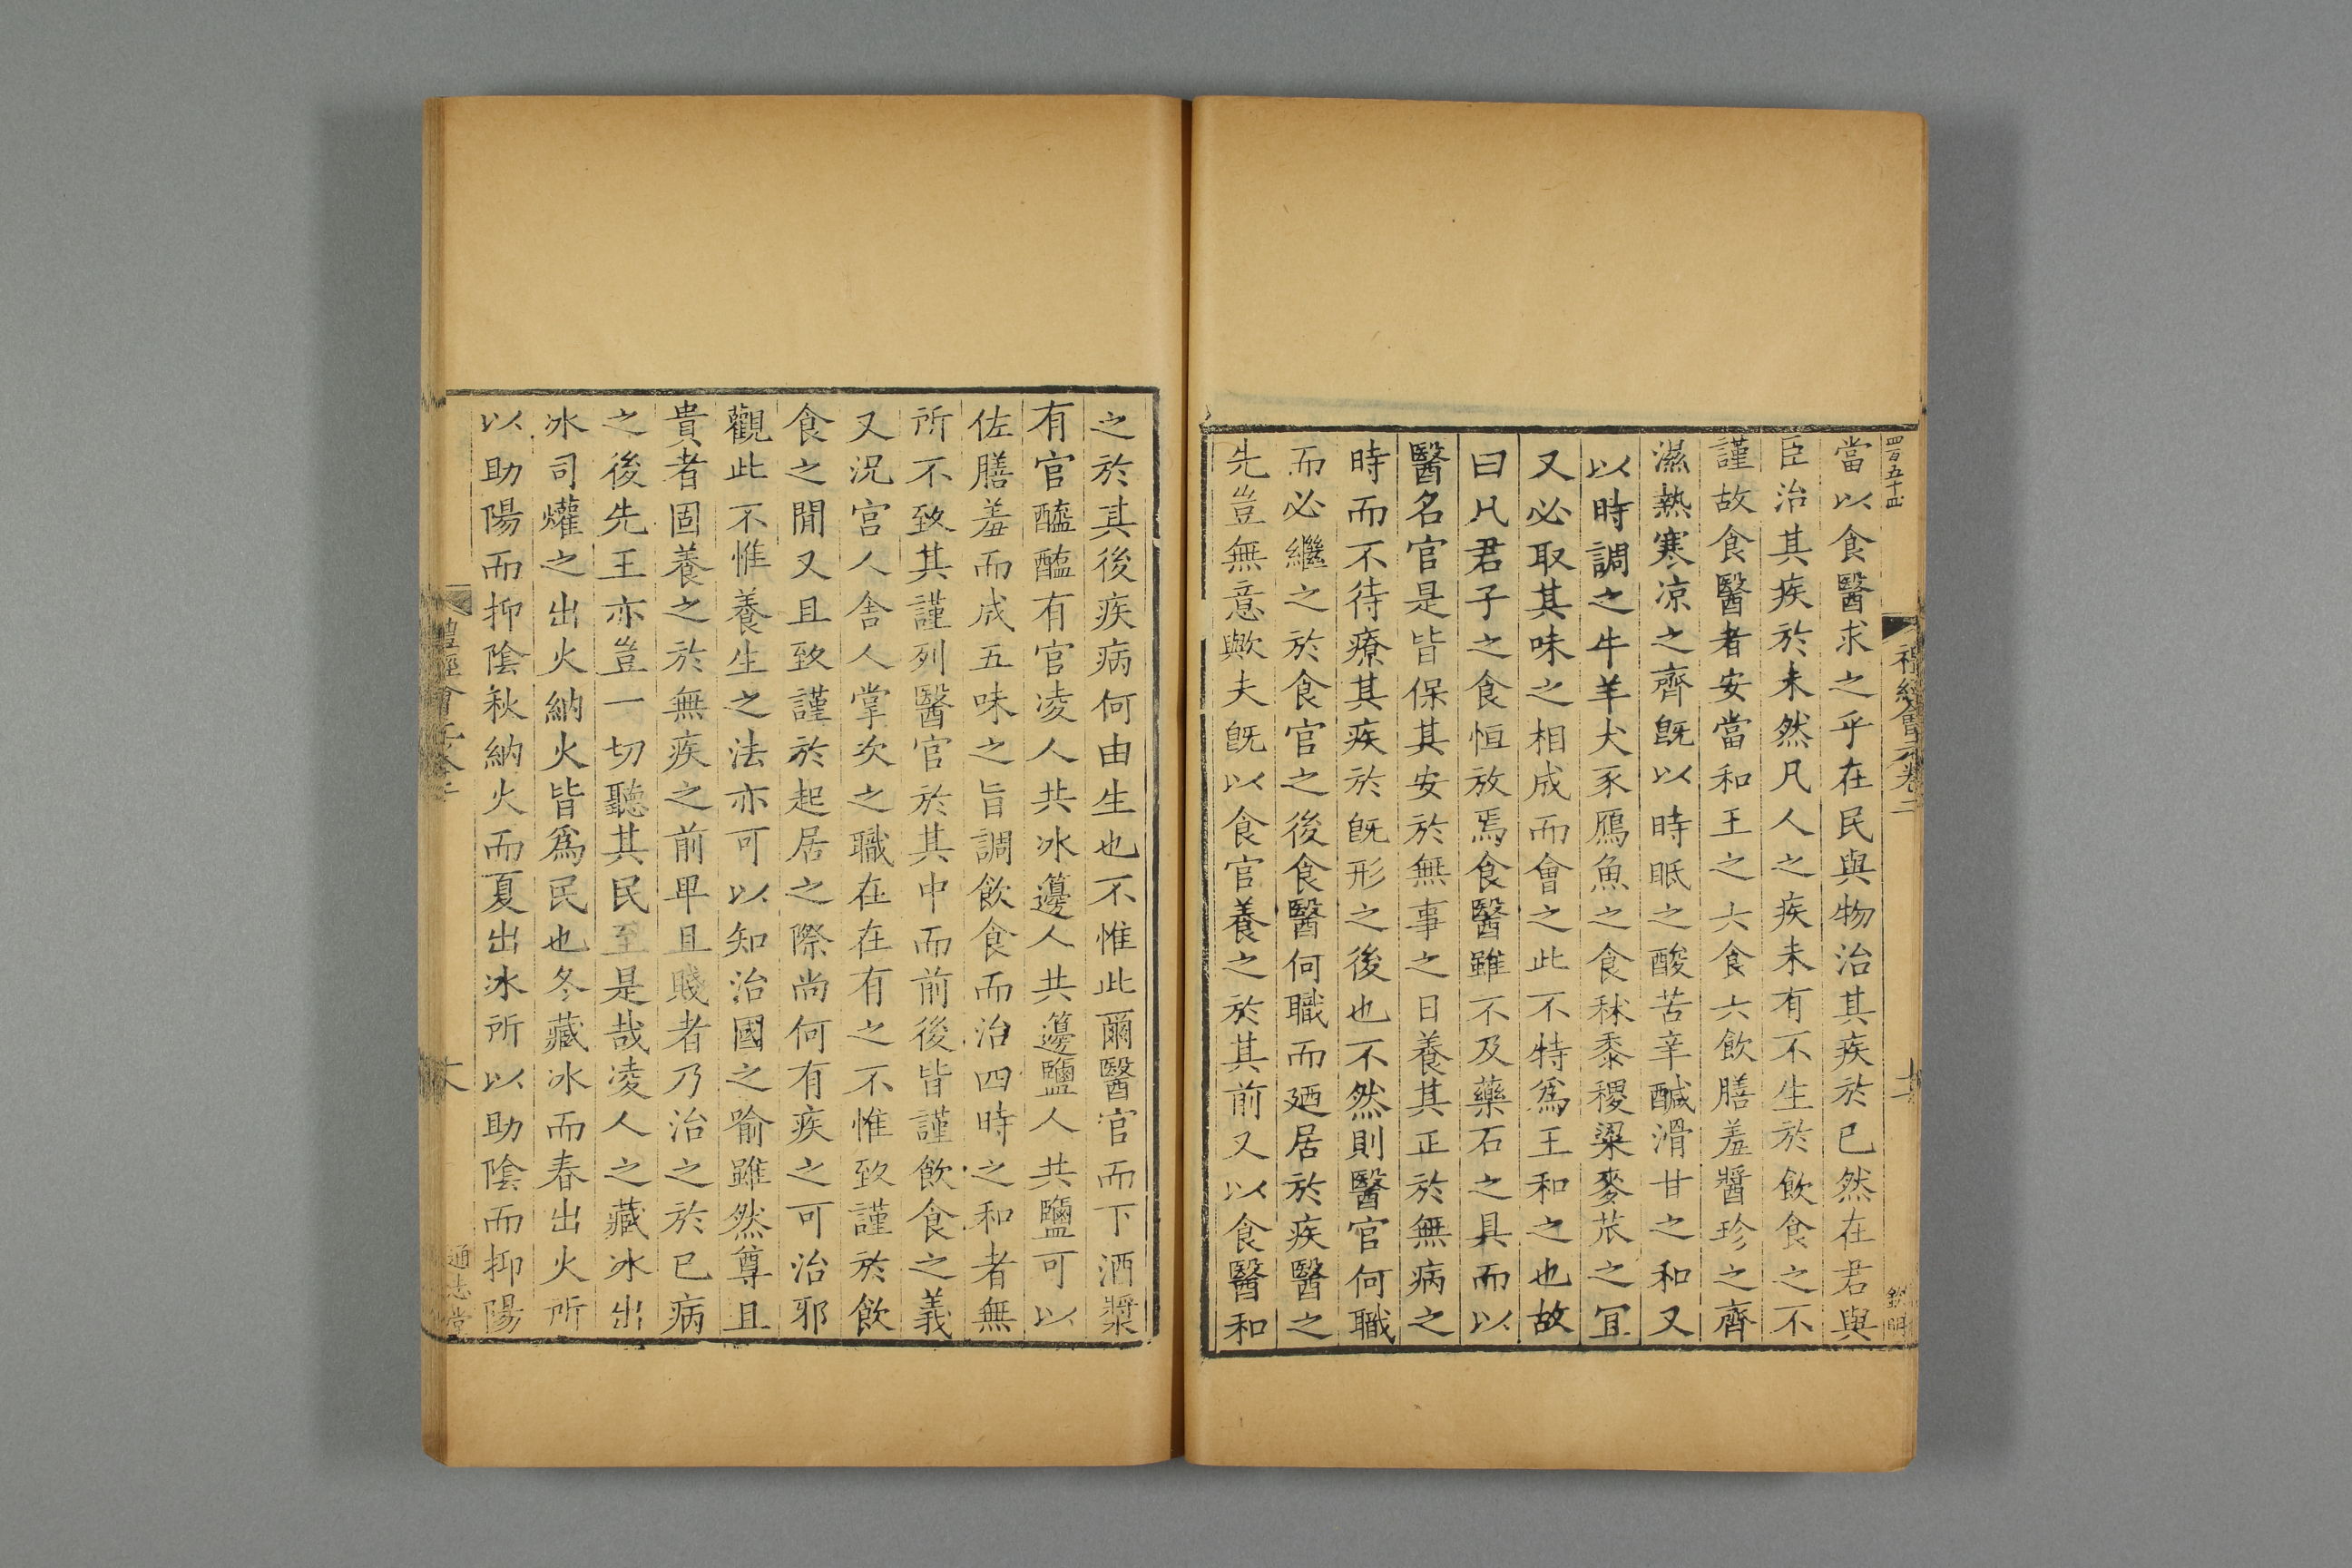 四百五十四
禮經會元卷二
十二
當以食醫求之乎在民與物治其疾於已然在君與
臣治其疾於未然凡人之疾未有不生於飲食之不
謹故食醫者安當和王之六食六飲膳羞醬珍之齊
濕熱寒涼之齊既以時眡之酸苦辛醎滑甘之和又
以時調之牛羊犬豕鴈魚之食秫黍稷粱麥苽之冝
又必取其味之相成而會之此不特爲王和之也故
曰凡君子之食恒放焉食醫雖不及藥石之具而以
醫名官是皆保其安於無事之日養其正於無病之
時而不待療其疾於既形之後也不然則醫官何職
而必繼之於食官之後食醫何職而廼居於疾醫之
先豈無意歟夫既以食官養之於其前又以食醫和
之於其後疾病何由生也不惟此爾醫官而下酒漿
有官醯醢有官凌人共冰籩人共籩鹽人共鹽可以
佐膳羞而成五味之旨調飲食而治四時之和者無
所不致其謹列醫官於其中而前後皆謹飲食之義
又況宮人舍人掌次之職在在有之不惟致謹於飲
食之閒又且致謹於起居之際尚何有疾之可治邪
觀此不惟養生之法亦可以知治國之喻雖然尊且
貴者固養之於無疾之前卑且賤者乃治之於已病
之後先王亦豈一切聽其民至是哉凌人之藏冰出
冰司爟之出火納火皆爲民也冬藏冰而春出火所
以助陽而抑陰秋納火而夏出冰所以助陰而抑陽
禮經會元卷二
通志堂